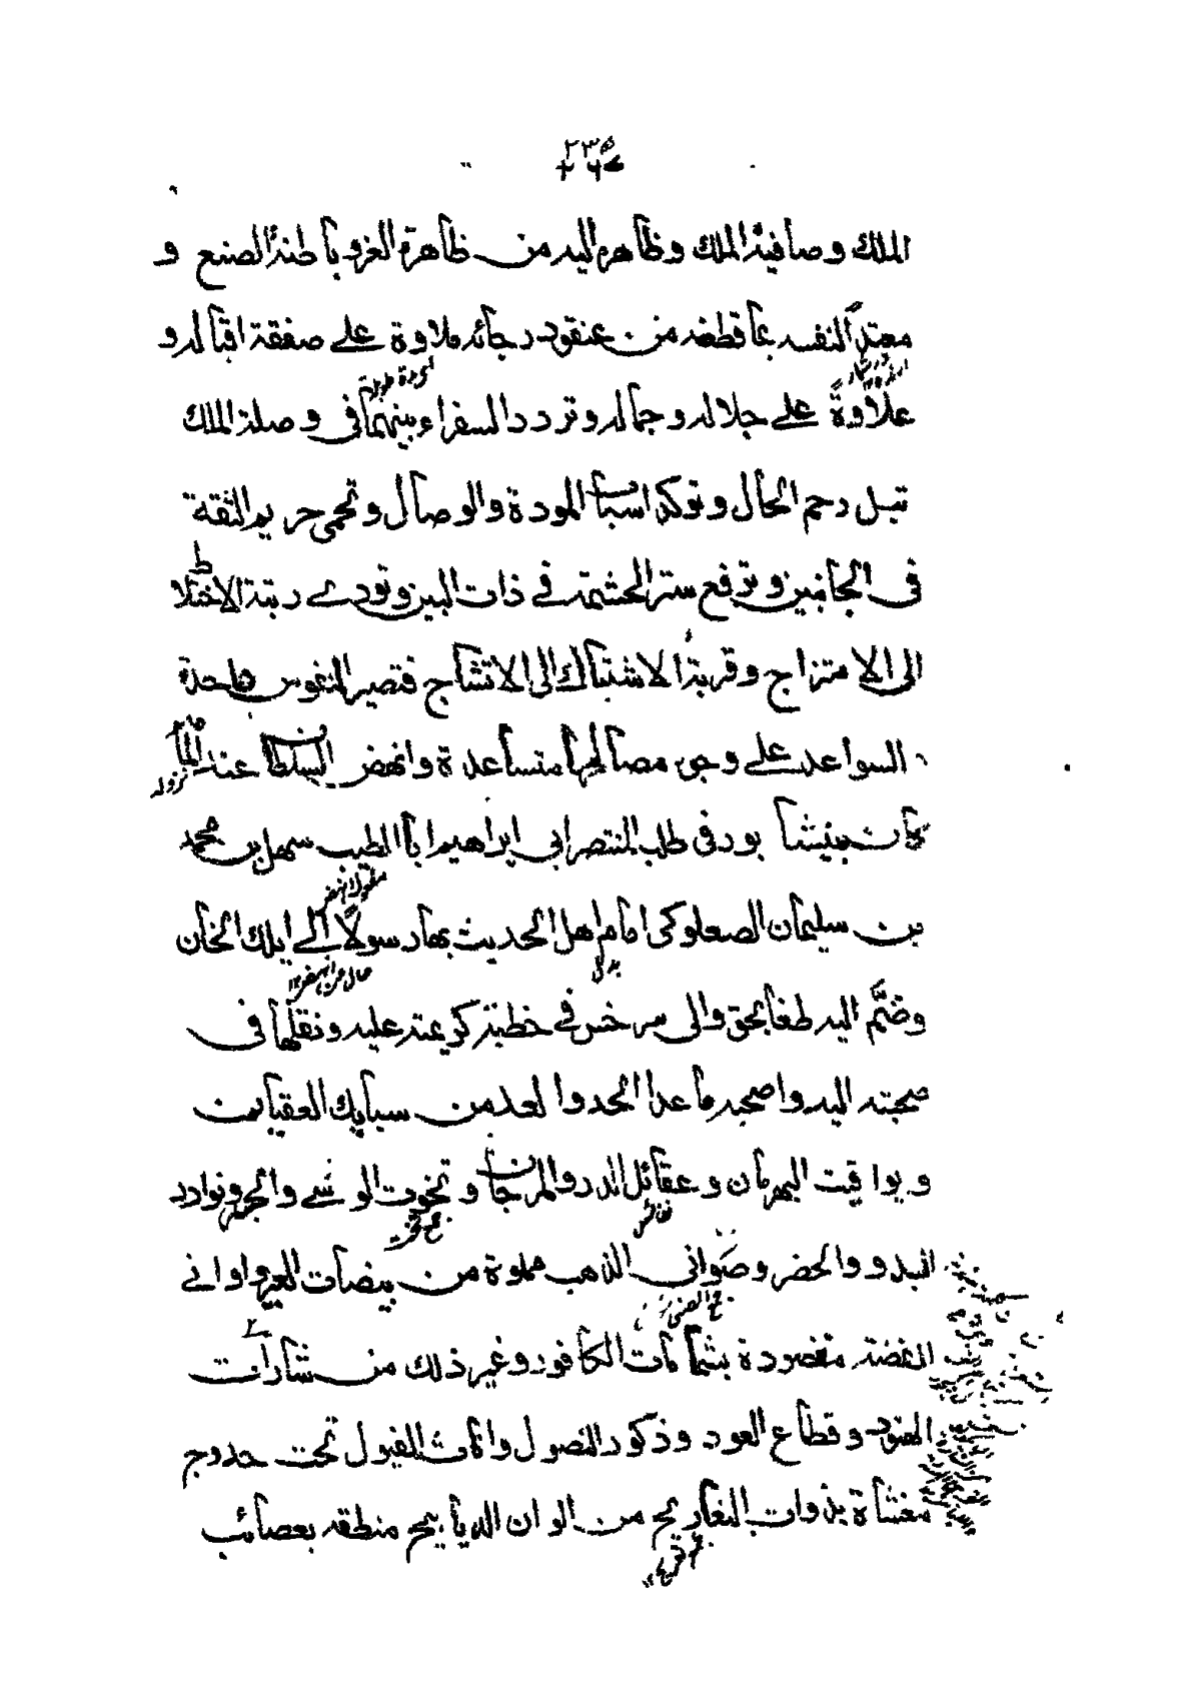 ۲۳۵
الملك وصافية الملك وظاهره اليه من ظاهرة الغزو باطنة الصنع و
معتدا لنفسه بما قطفه من عنقود رجائه ملاوة على صفقة اقباله و
اى مدة طويلة
علاوة على جلاله وجماله وتردد السفراء بينهما فى وصلة الملك
تبل رحم الحال وتوكد اسباب المودة والوصال وتحمى حريم الثقة
فى الجانبين وترفع ستر الحشمة فى ذات البين وتودى رتبة الاختلاط
الى الامتزاج وقربة الاشتباك الى الاتشاج فتصير النفوس واحدة
السواعد على وجوه مصالحها متساعدة وانهض السلطان عند المامه
نزوله
كان بنيشابور فى طلب المنتصر ابى ابراهيم ابا الطيب سهل بن محمد
مفعول انهض
بن سليمان الصعلوكى امام اهل الحديث بها رسولا الى ايلك الخان
حال من انهض
وضم اليه طغانجق والى سرخس فى خطبة كريمته عليه ونقلها فى
صحبته اليه واصحبه ما عدا الحد والعد من سبايك العقيان
ويواقيت البهرمان وعقائل الدر والمرجان وتخوت الوشى والحبر ونوادر
نفائس
جمع تخت
البدو والحضر وصوانى الذهب مملوة من بيضات العنبر واوانى
جمع الصينى
الفضة منضودة بشمامات الكافور وغير ذلك من شارات
الهنود وقطاع العود وذكور النصول واناث الفيول تحت حدوج
مغشاة بذوات التفاريج من الوان الديابيج منطقه بعصائب